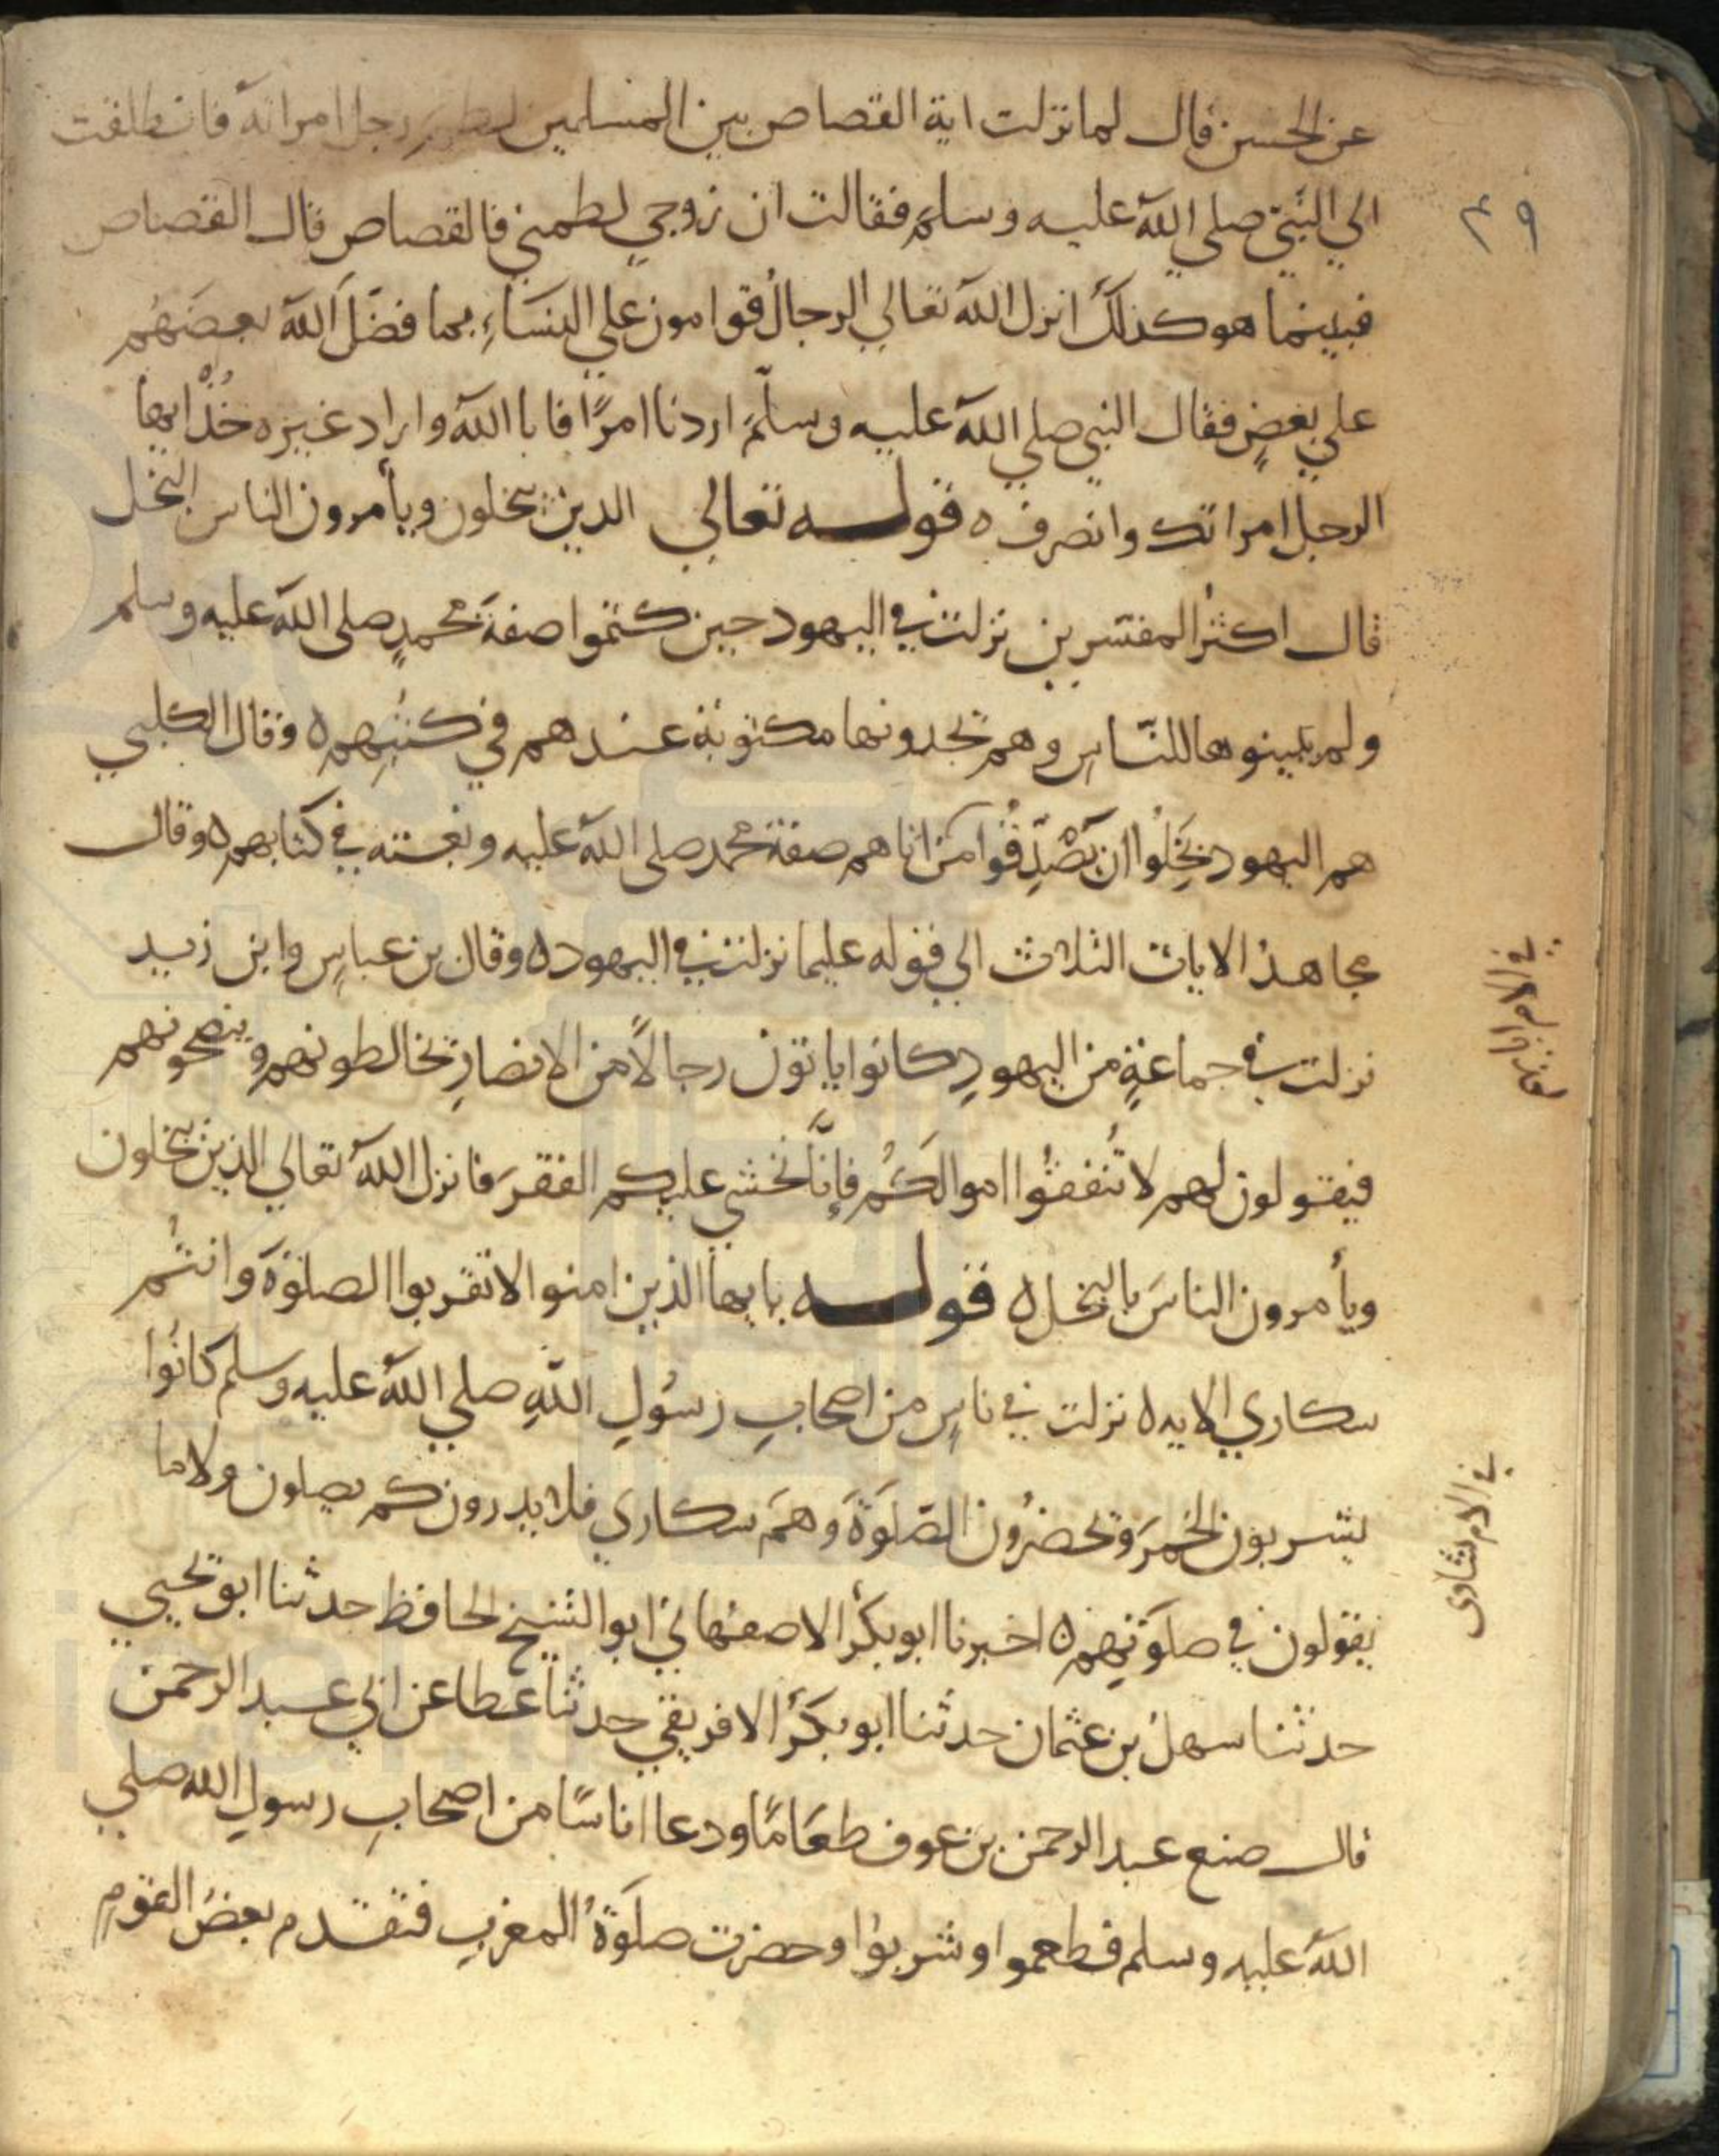 عن الحسن قال لما نزلت اية القصاص بين المسلمين لطم رجل امراته فانطلقت
٤٩
الي النبي صلي الله عليه وسلم فقالت ان زوجي لطمني فالقصاص قال القصاص
فبينما هو كذلك انزل الله تعالي الرجال قوامون علي النساء بما فضل الله بعضهم
علي بعض فقال النبي صلي الله عليه وسلم اردنا امرًا فابا الله واراد غيره خذ ايها
الرجل امراتك وانصرف ه قوله تعالي الذين يبخلون ويأمرون الناس بالبخل
قال اكثر المفسرين نزلت في اليهود حين كتموا صفة محمدٍ صلي الله عليه وسلم
ولم يبينوها للناس وهم يجدونها مكتوبة عندهم في كتبهم ه وقال الكلبي
هم اليهود بَخِلُوا ان يصدقوا من اتاهم صفة محمد صلي الله عليه ونعته في كتابهم ه وقال
مجاهد الايات الثلاث الي قوله عليما نزلت في اليهود ه وقال بن عباس وابن زيد
نزلت في جماعةٍ من اليهودِ كانوا ياتون رجالًا من الانصارِ يخالطونهم وينصحونهم
فيقولون لهم لا تُنفقُوا اموالكُم فإنَّا نخشي عليكم الفقرَ فانزل الله تعالي الذين يبخلون
ويأمرون الناسَ بالبخل ه قوله يايها الذين امنوا لا تقربوا الصلوة وانتُم
سكاري الايه ه نزلت في ناسٍ من اصحابِ رسُولِ اللهِ صلي الله عليه وسلم كانُوا
يشربون الخمرَ ويحضرُون الصلوةَ وهم سكاري فلا يدرون كم يصلون ولا ما
يقولون في صلوتهم ه اخبرنا ابو بكر الاصفهاني ابو الشيخ الحافظ حدثنا ابو يحيي
حدثنا سهل بن عثمان حدثنا ابو بكر الافريقي حدثنا عطا عن ابي عبد الرحمن
قال صنع عبد الرحمن بن عوف طعَامًا ودعا اناسًا من اصحابِ رسولِ الله صلي
الله عليه وسلم فطعموا وشربوا وحضرت صلوةُ المغربِ فتقدم بعضُ القومِ